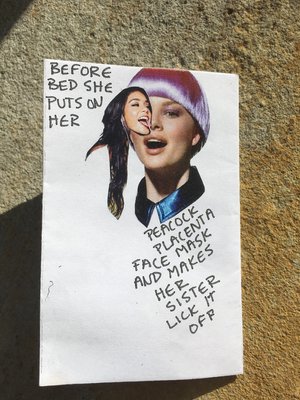 BEFORE
BED SHE
PUTS ON
HER
PEACOCK
PLACENTA
FACE MASK
AND MAKES
HER
SISTER
LICK IT
OFF